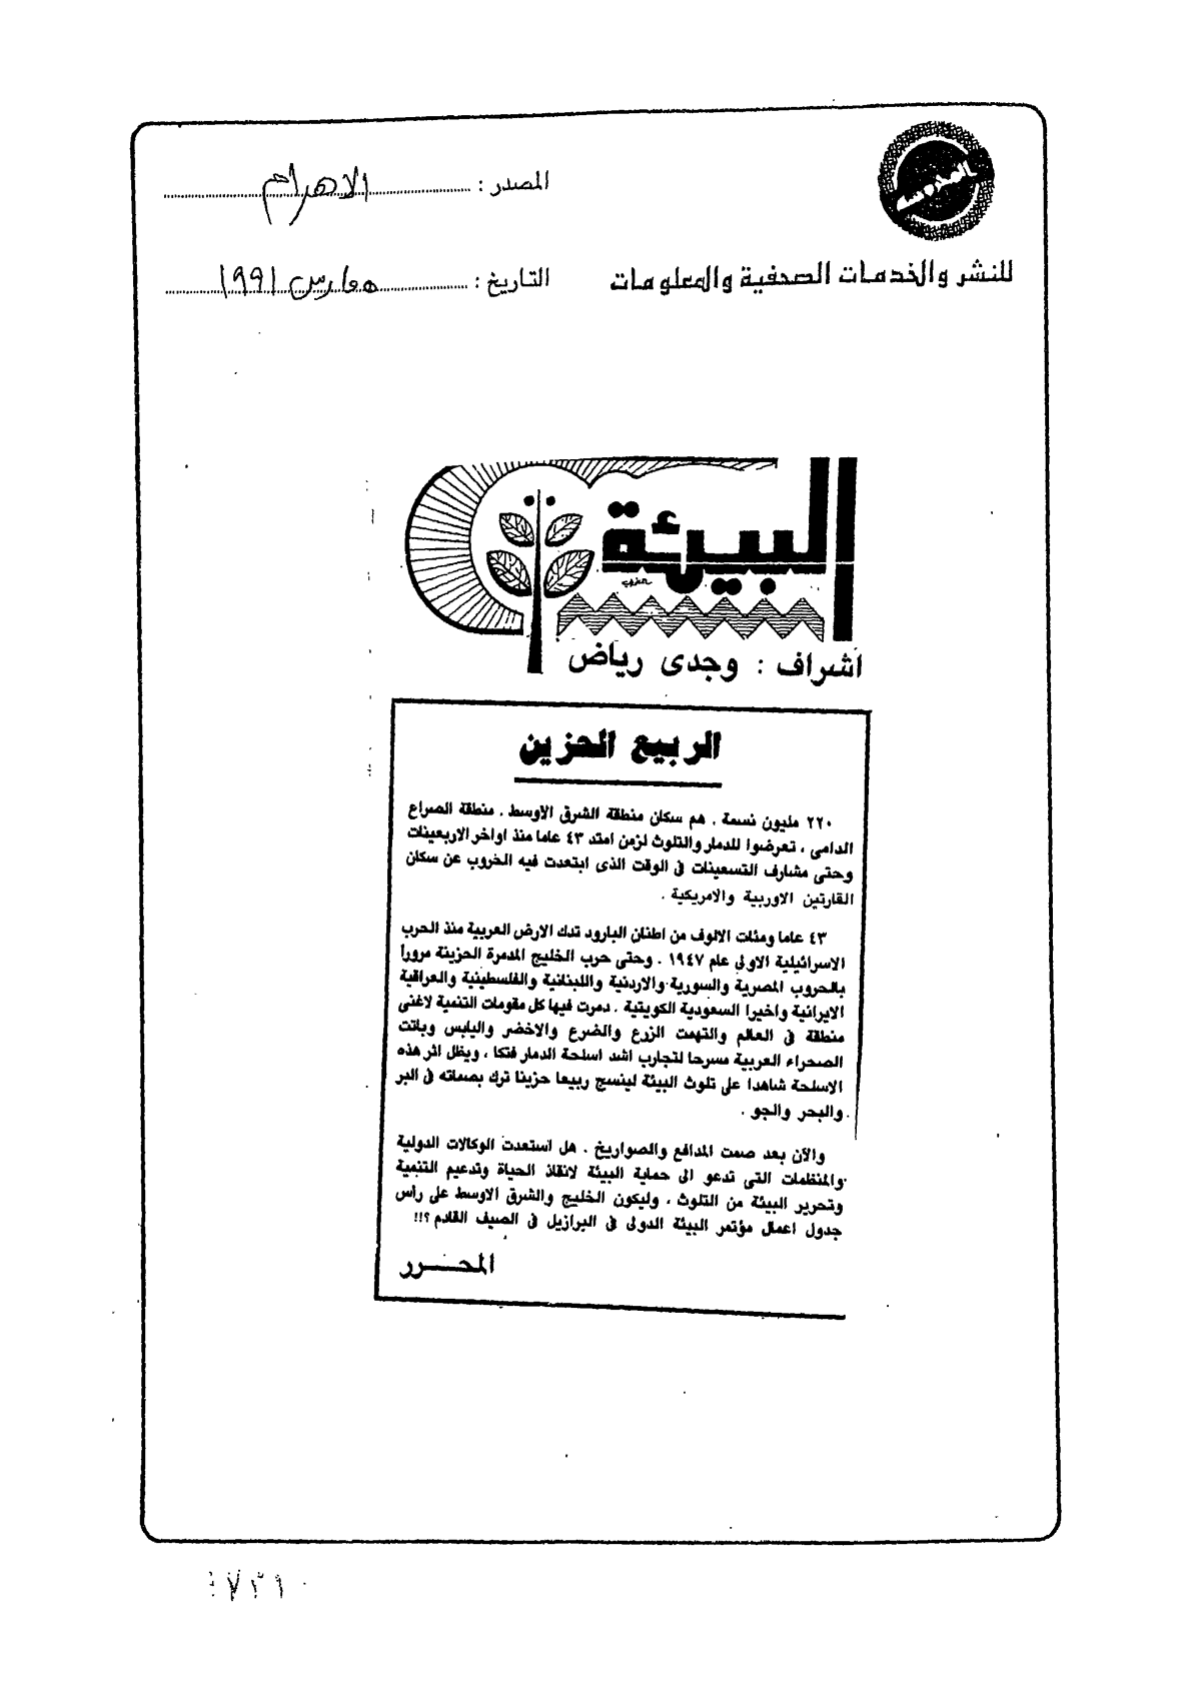 المصدر : الاهرام
للنشر والخدمات الصحفية والمعلومات
التاريخ : ٥ مارس ١٩٩١
البيئة
اشراف : وجدى رياض
الربيع الحزين
٢٢٠ مليون نسمة . هم سكان منطقة الشرق الاوسط . منطقة الصراع
الدامى ، تعرضوا للدمار والتلوث لزمن امتد ٤٣ عاما منذ اواخر الاربعينات
وحتى مشارف التسعينات فى الوقت الذى ابتعدت فيه الحروب عن سكان
القارتين الاوربية والامريكية .
٤٣ عاما ومئات الالوف من اطنان البارود تدك الارض العربية منذ الحرب
الاسرائيلية الاولى عام ١٩٤٧ . وحتى حرب الخليج المدمرة الحزينة مرورا
بالحروب المصرية والسورية والاردنية واللبنانية والفلسطينية والعراقية
الايرانية واخيرا السعودية الكويتية . دمرت فيها كل مقومات التنمية لاغنى
منطقة فى العالم والتهمت الزرع والضرع والاخضر واليابس وباتت
الصحراء العربية مسرحا لتجارب اشد اسلحة الدمار فتكا ، ويظل اثر هذه
الاسلحة شاهدا على تلوث البيئة لينسج ربيعا حزينا ترك بصماته فى البر
والبحر والجو .
والآن بعد صمت المدافع والصواريخ . هل استعدت الوكالات الدولية
والمنظمات التى تدعو الى حماية البيئة لانقاذ الحياة وتدعيم التنمية
وتحرير البيئة من التلوث ، وليكون الخليج والشرق الاوسط على رأس
جدول اعمال مؤتمر البيئة الدولى فى البرازيل فى الصيف القادم ؟!!
المحــرر